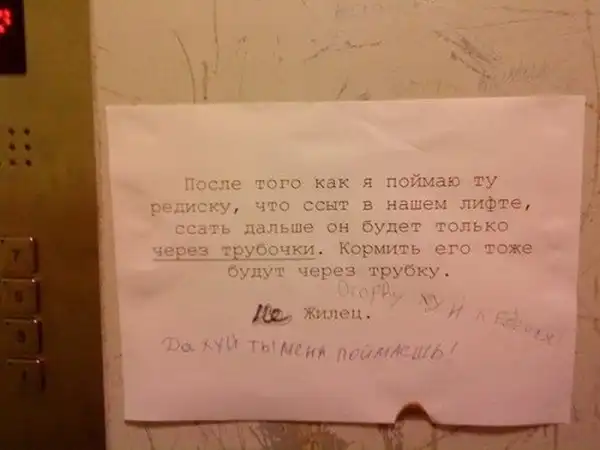 После того как я поймаю ту
редиску, что ссыт в нашем лифте,
ссать дальше он будет только
через трубочки. Кормить его тоже
будут через трубку.
Оторву хуй и
Не Жилец.
Да хуй ты меня поймаешь!
7